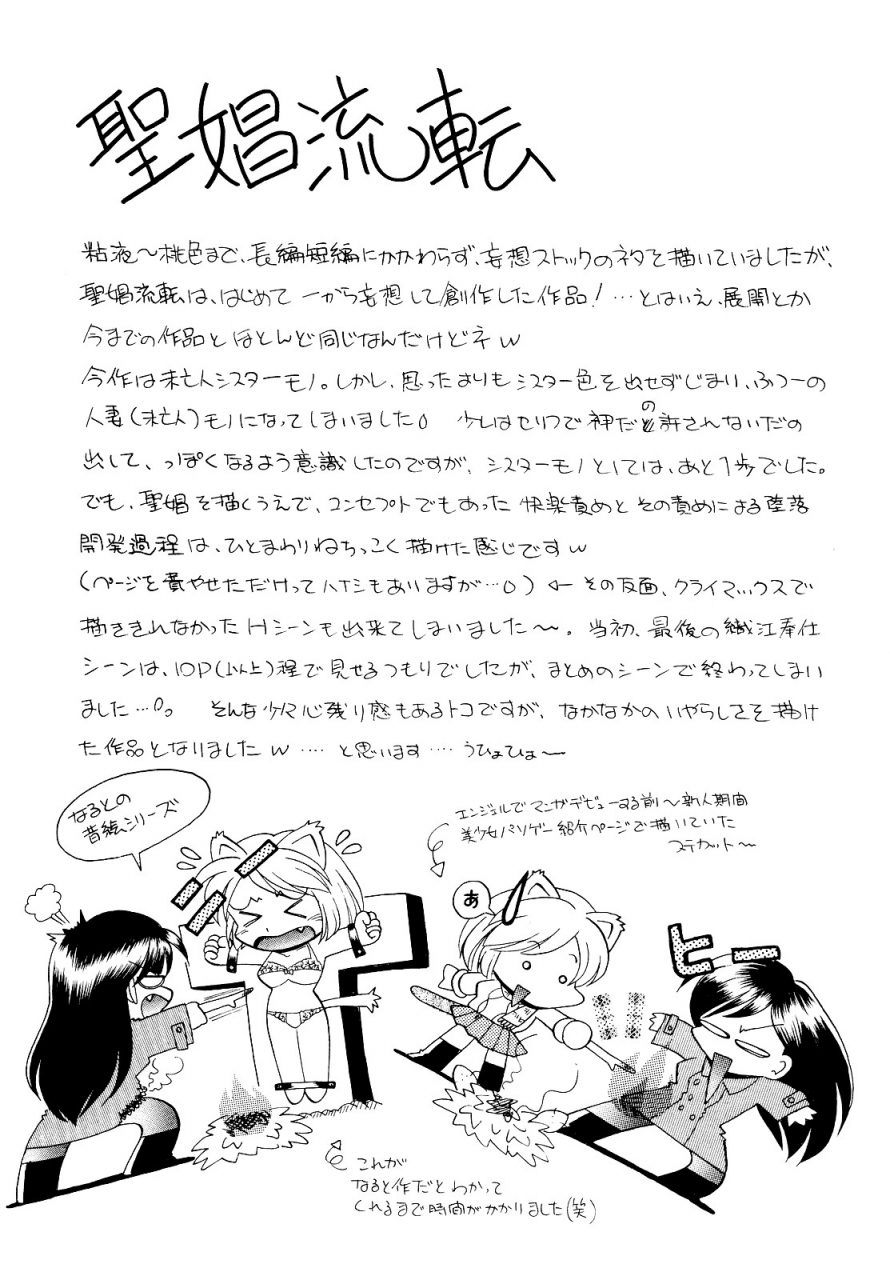 聖娼流転
粘液〜桃色まで、長編短編にかかわらず、妄想ストックのネタを描いていましたが、
聖娼流転は、はじめて一から妄想して創作した作品！…とはいえ、展開とか
今までの作品とほとんど同じなんだけどネw
今作は未亡人シスターモノ。しかし、思ったよりもシスター色を出せずじまい、ふつーの
人妻(未亡人)モノになってしまいました 少しはセリフで神だの許されないだの
出して、っぽくなるよう意識したのですが、シスターモノとしては、あと1歩でした。
でも、聖娼を描くうえで、コンセプトでもあった快楽責めとその責めによる堕落
開発過程は、ひとまわりねちっこく描けた感じですw
(ページを費やせただけってハナシもありますが…) ← その反面、クライマックスで
描ききれなかったHシーンも出来てしまいました〜。当初、最後の織江奉仕
シーンは、10P(以上)程で見せるつもりでしたが、まとめのシーンで終わってしまい
ました… そんな少々心残り感もあるトコですが、なかなかのいやらしさを描け
た作品となりましたw‥‥と思います‥‥うひょひょ〜
なるとの
昔絵シリーズ
エンジェルでマンガデビューする前〜新人期間
美少女パソゲー紹介ページで描いていた
ステカット〜
あ
ヒー
これが
なると作だとわかって
くれるまで時間がかかりました(笑)